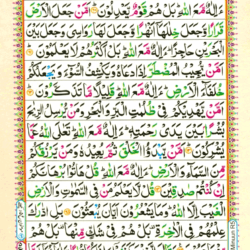 ءَاِلٰهٌ مَّعَ اللّٰهِ ؕ بَلْ هُمْ قَوْمٌ يَّعْدِلُوْنَ ؕ اَمَّنْ جَعَلَ الْاَرْضَ
قَرَارًا وَّجَعَلَ خِلٰلَهَاۤ اَنْهٰرًا وَّجَعَلَ لَهَا رَوَاسِيَ وَجَعَلَ بَيْنَ
الْبَحْرَيْنِ حَاجِزًا ؕ ءَاِلٰهٌ مَّعَ اللّٰهِ ؕ بَلْ اَكْثَرُهُمْ لَا يَعْلَمُوْنَ ؕ
اَمَّنْ يُّجِيْبُ الْمُضْطَرَّ اِذَا دَعَاهُ وَيَكْشِفُ السُّوْٓءَ وَيَجْعَلُكُمْ
خُلَفَآءَ الْاَرْضِ ؕ ءَاِلٰهٌ مَّعَ اللّٰهِ ؕ قَلِيْلًا مَّا تَذَكَّرُوْنَ ؕ
اَمَّنْ يَّهْدِيْكُمْ فِيْ ظُلُمٰتِ الْبَرِّ وَالْبَحْرِ وَمَنْ يُّرْسِلُ الرِّيٰحَ
بُشْرًۢا بَيْنَ يَدَيْ رَحْمَتِهٖ ؕ ءَاِلٰهٌ مَّعَ اللّٰهِ ؕ تَعٰلَى اللّٰهُ عَمَّا
يُشْرِكُوْنَ ؕ اَمَّنْ يَّبْدَؤُا الْخَلْقَ ثُمَّ يُعِيْدُهٗ وَمَنْ يَّرْزُقُكُمْ
مِّنَ السَّمَآءِ وَالْاَرْضِ ؕ ءَاِلٰهٌ مَّعَ اللّٰهِ ؕ قُلْ هَاتُوْا بُرْهَانَكُمْ
اِنْ كُنْتُمْ صٰدِقِيْنَ قُلْ لَّا يَعْلَمُ مَنْ فِي السَّمٰوٰتِ وَالْاَرْضِ
الْغَيْبَ اِلَّا اللّٰهُ ؕ وَمَا يَشْعُرُوْنَ اَيَّانَ يُبْعَثُوْنَ بَلِ ادّٰرَكَ
عِلْمُهُمْ فِي الْاٰخِرَةِ بَلْ هُمْ فِيْ شَكٍّ مِّنْهَا بَلْ هُمْ